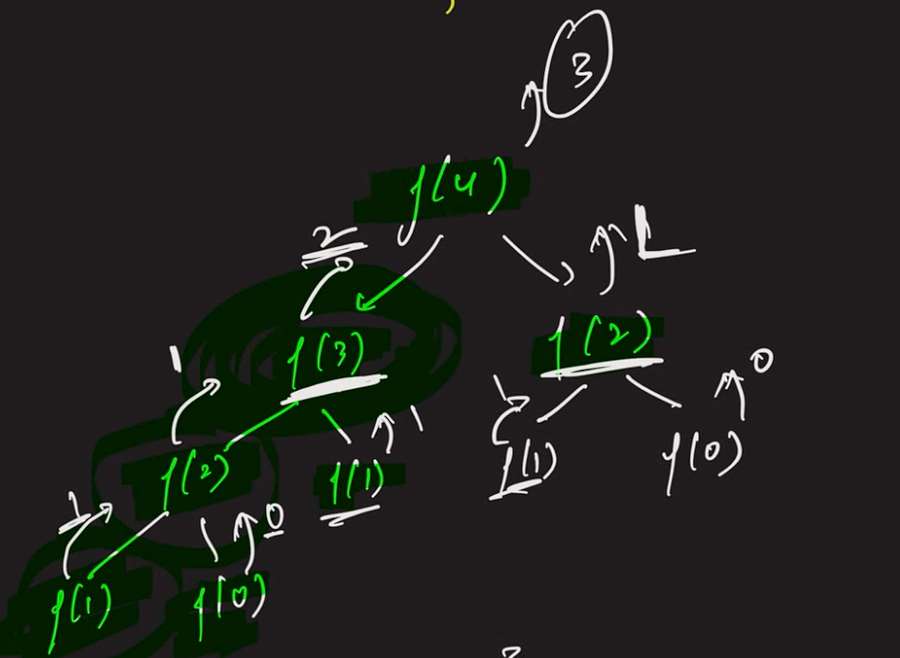 3
f(4)
2 1
f(3) f(2)
1 1 1 0
f(2) f(1) f(1) f(0)
1 0
f(1) f(0)